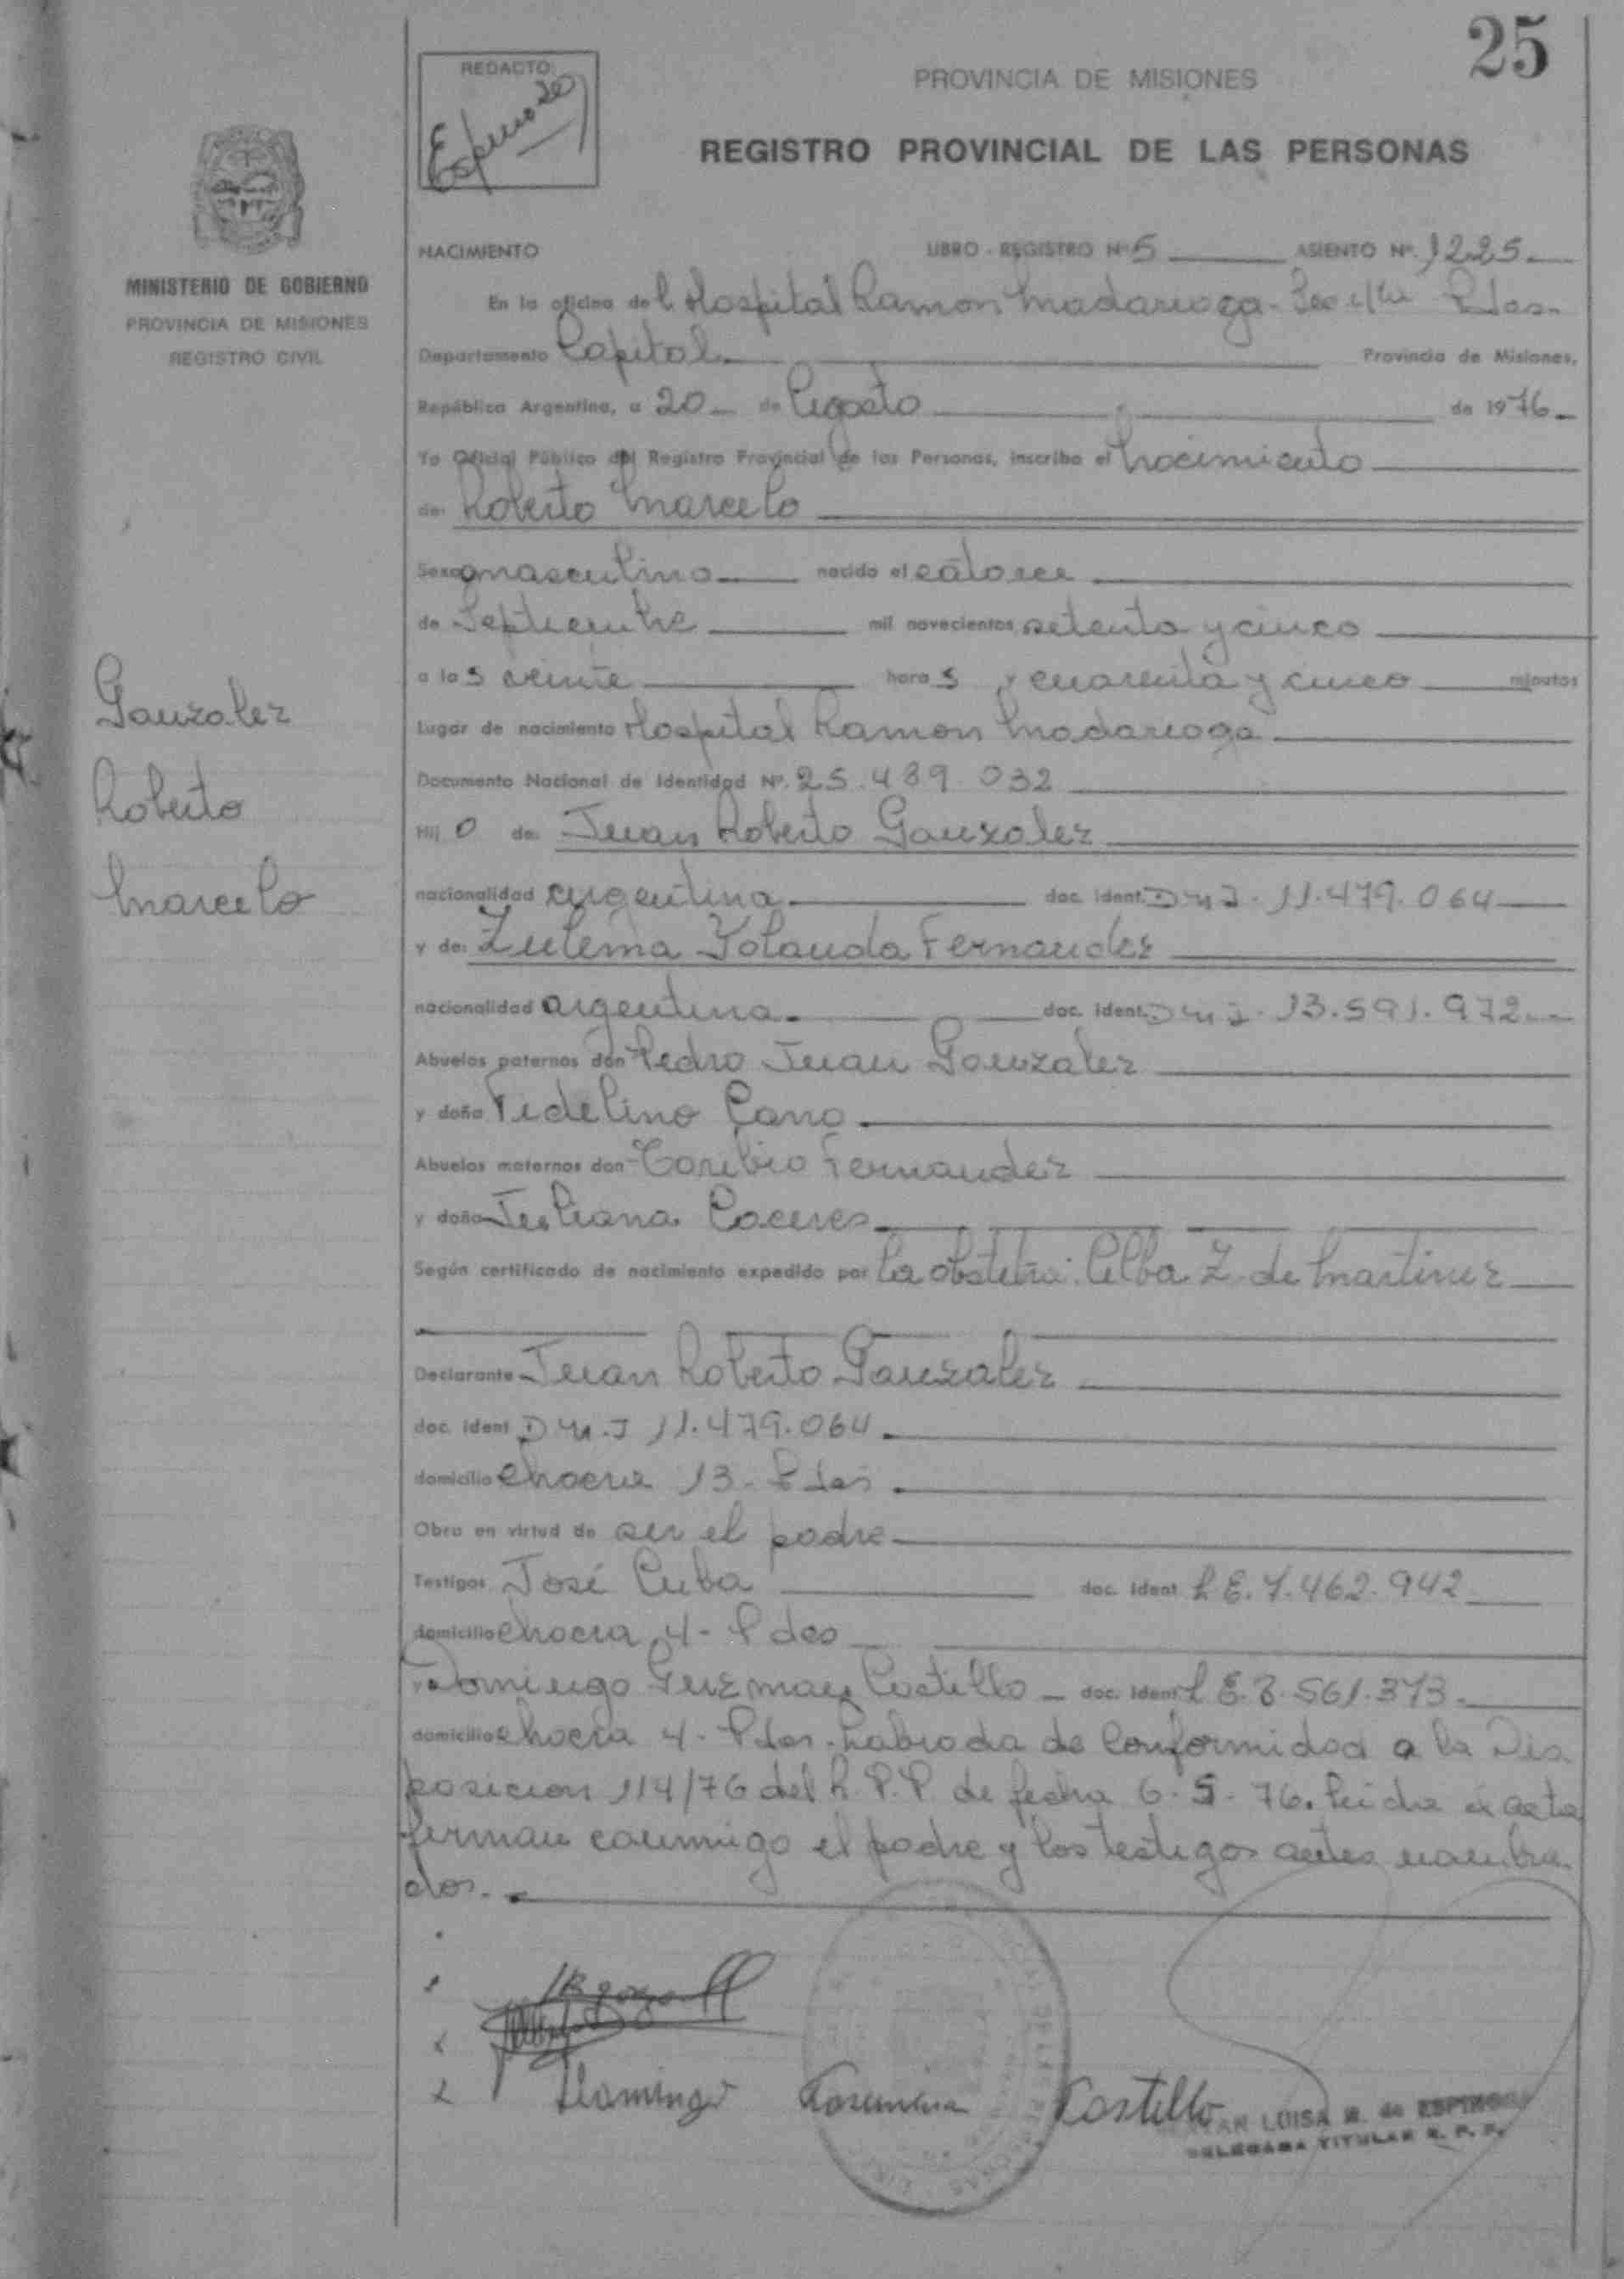 25
REDACTO:
PROVINCIA DE MISIONES
REGISTRO PROVINCIAL DE LAS PERSONAS
MINISTERIO DE GOBIERNO
PROVINCIA DE MISIONES
REGISTRO CIVIL
Gonzalez
Roberto
Marcelo
NACIMIENTO LIBRO - REGISTRO Nº 5 ASIENTO Nº. 1225.
En la oficina del Hospital Ramon Madariaga - Pdas.
Departamento Capital. Provincia de Misiones,
República Argentina, a 20 de Agosto de 1976
Yo Oficial Público del Registro Provincial de las Personas, inscribo el nacimiento
de: Roberto Marcelo
Sexo masculino nacido el catorce
de Septiembre mil novecientos setenta y cinco
a las veinte horas y cuarenta y cinco minutos
Lugar de nacimiento Hospital Ramon Madariaga
Documento Nacional de Identidad Nº. 25.489.032
Hijo de: Juan Roberto Gonzalez
nacionalidad argentina doc. ident. DNI. 11.479.064
y de: Zulema Yolanda Fernandez
nacionalidad argentina doc. ident. DNI. 13.591.972
Abuelos paternos don Pedro Juan Gonzalez
y doña Fidelina Cano
Abuelos maternos don Toribio Fernandez
y doña Juliana Caceres
Según certificado de nacimiento expedido por la obstetra: Alba Z. de Martinez
Declarante Juan Roberto Gonzalez
doc. ident DNI 11.479.064
domicilio chacra 13 - Pdas.
Obra en virtud de ser el padre
Testigos José Cuba doc. ident L E. 7.462.942
domicilio chacra 4 - Pdas
y Domingo Guzman Castillo doc. ident L E. 3.561.373.
domicilio chacra 4 - Pdas. Labrada de conformidad a la Dis
posicion 114/76 del R.P.P. de fecha 6-5-76. Leida el acta
firman conmigo el padre y los testigos antes nombra
dos.
Domingo Castillo
LUISA R. de ESPINOSA
DELEGADA TITULAR R. P. P.